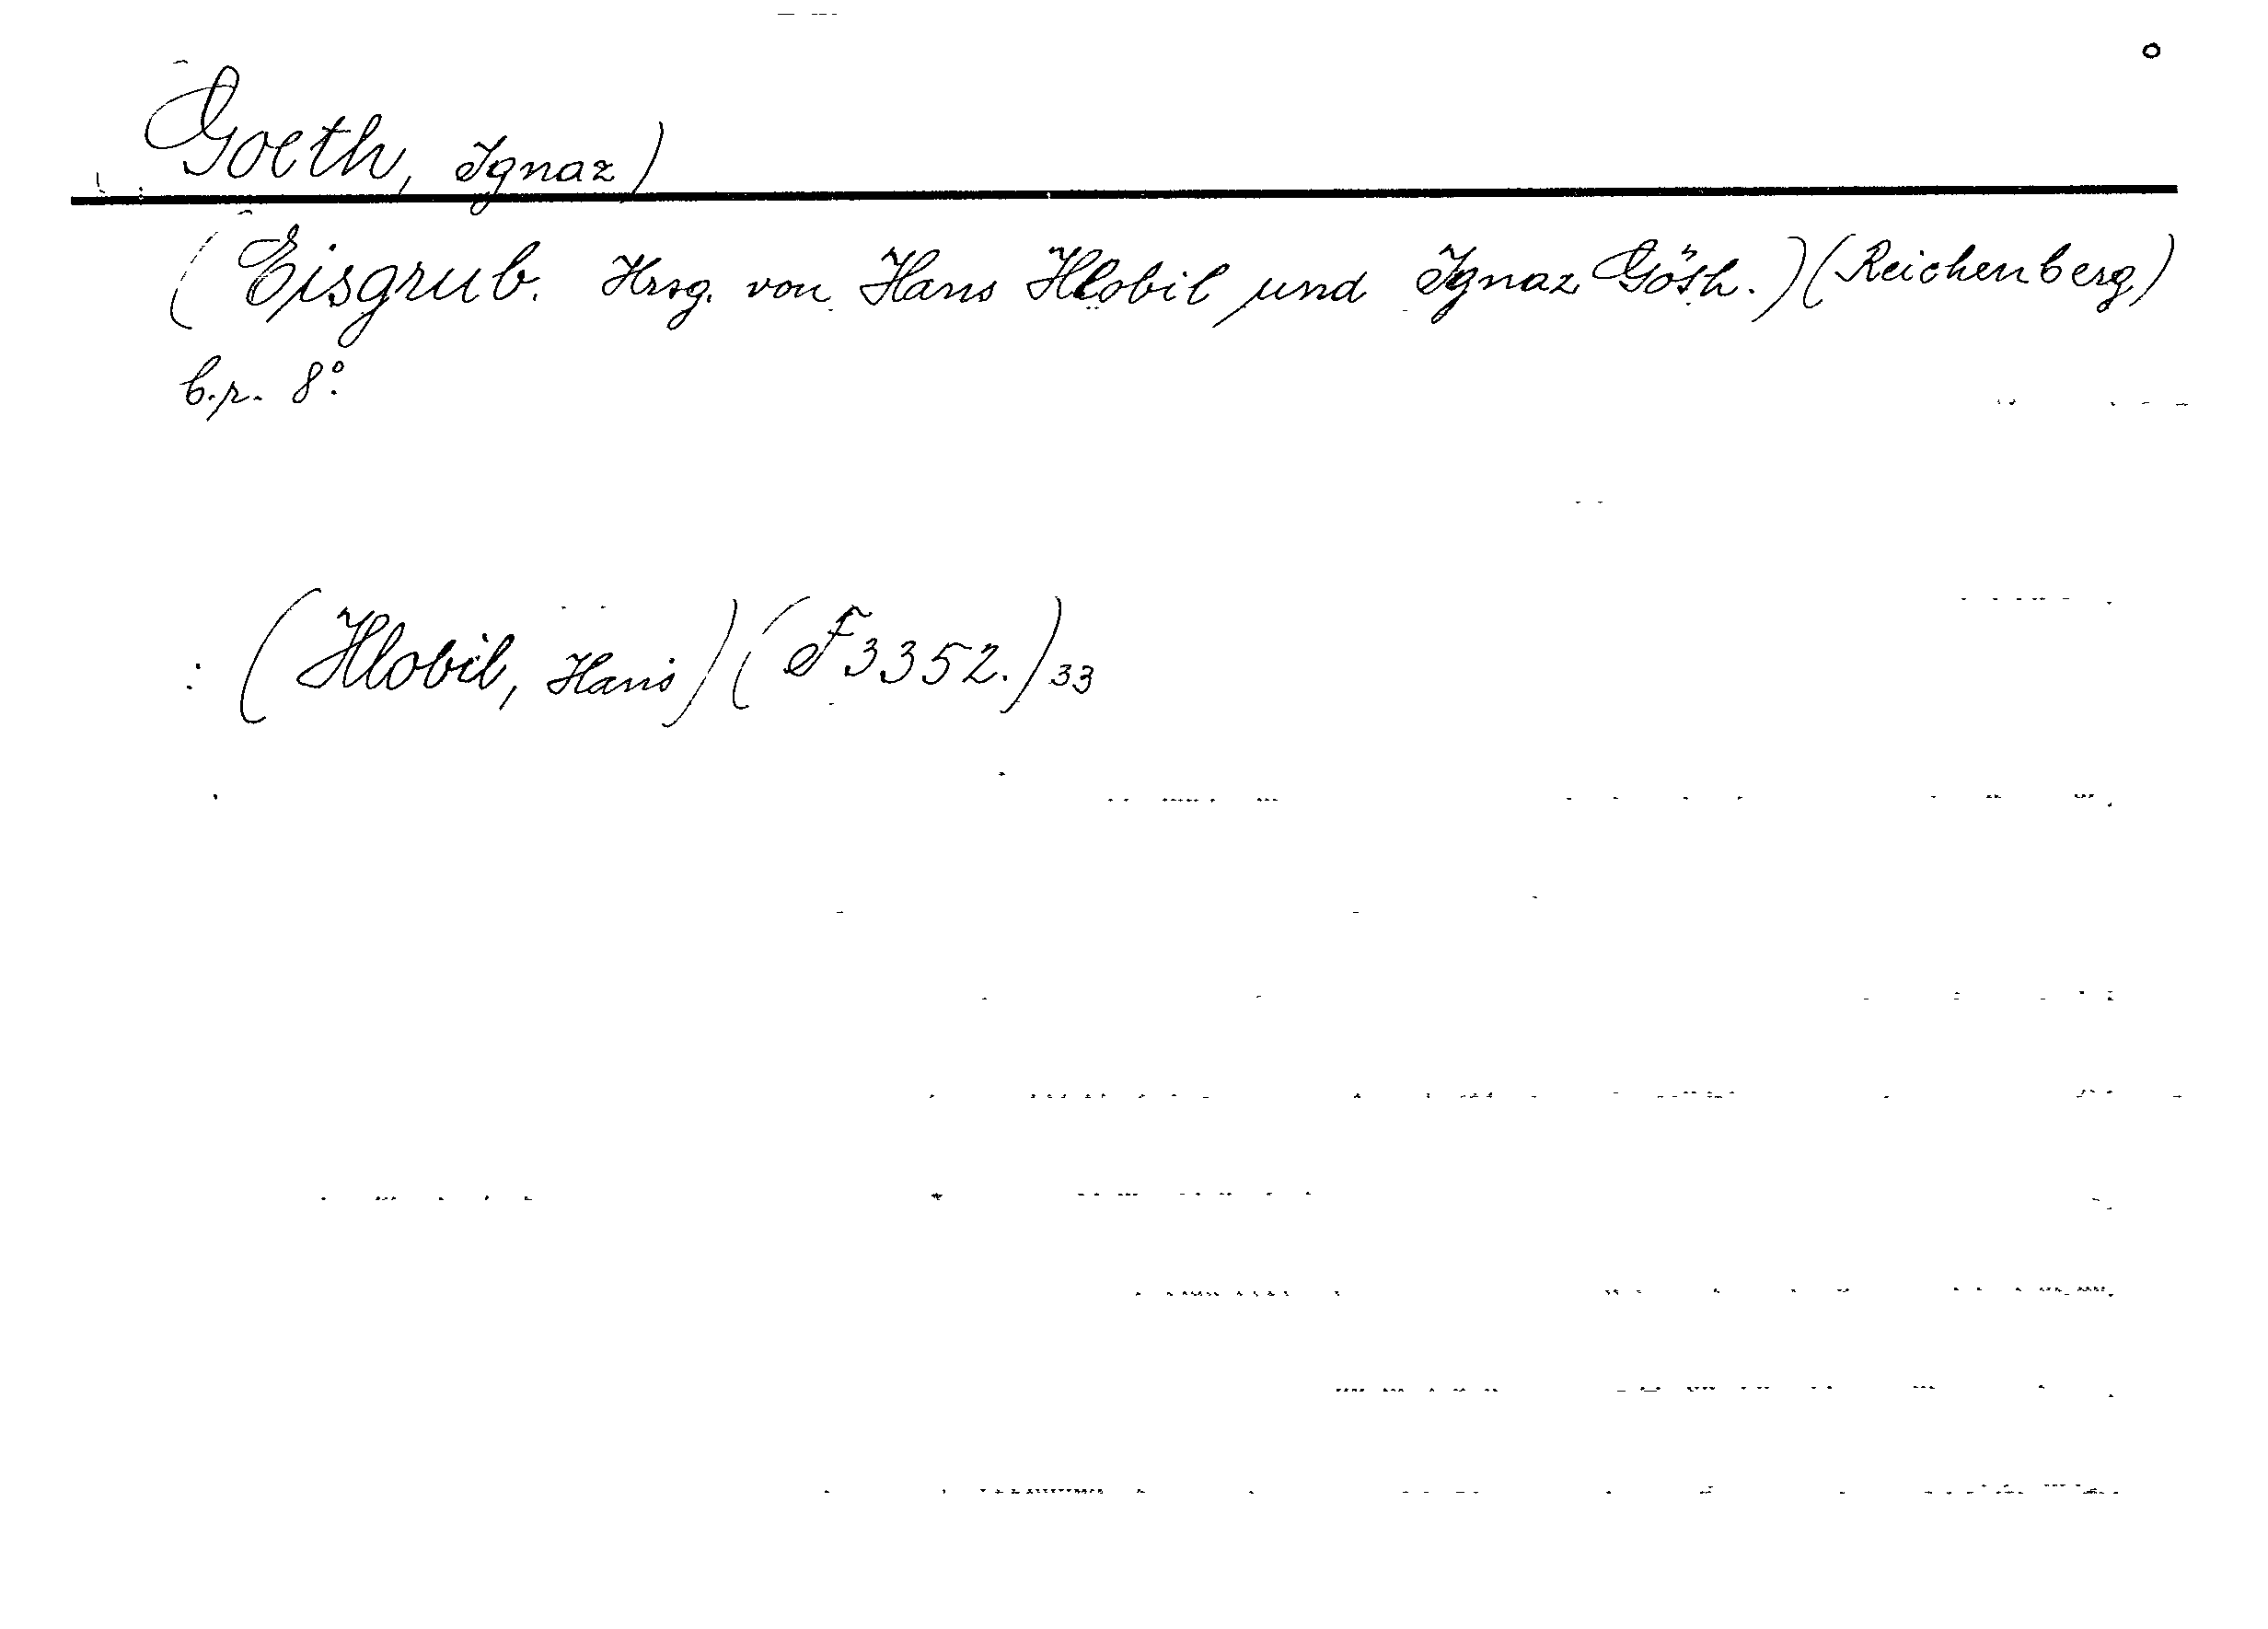 Goeth, Ignaz)
(Eisgrub. Hrsg. von Hans Hlobil und Ignaz Göth.) (Reichenberg)
b.r. 8°.
: (Hlobil, Hans) (F 3352.) 33